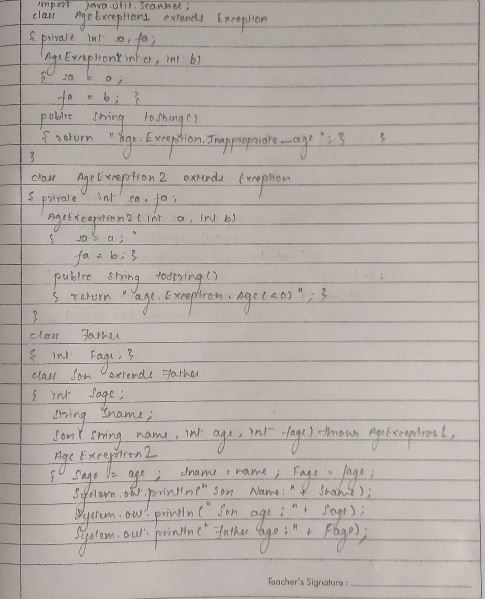 import java.util.Scanner;
class AgeException1 extends Exception
{ private int sa, fa;
AgeException1(int a, int b)
{ sa = a;
fa = b; }
public string tostring()
{ return "age.Exception.Inappropriate_age"; } }
}
class AgeException2 extends Exception
{ private int sa, fa;
AgeException2(int a, int b)
{ sa = a;
fa = b; }
public string tostring()
{ return "age.Exception.Age(<0)"; }
}
class Father
{ int Fage; }
class Son extends Father
{ int Sage;
string Sname;
Son(string name, int age, int fage) throws AgeException1,
AgeException2
{ Sage = age; Sname = name; Fage = fage;
System.out.println("Son Name:" + Sname);
System.out.println("Son age:" + Sage);
System.out.println("Father age:" + Fage);
Teacher's Signature :